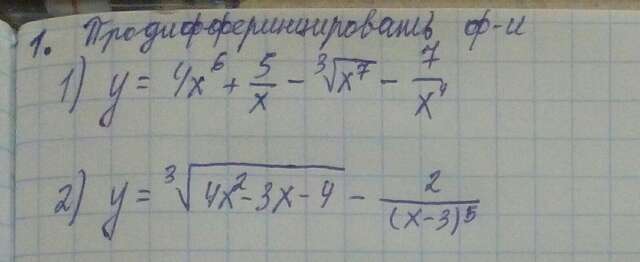 1. Продифференцировать ф-и
1) y = 4x⁶ + 5/x - ∛x⁷ - 7/x⁴
2) y = ∛(4x² - 3x - 4) - 2/(x-3)⁵